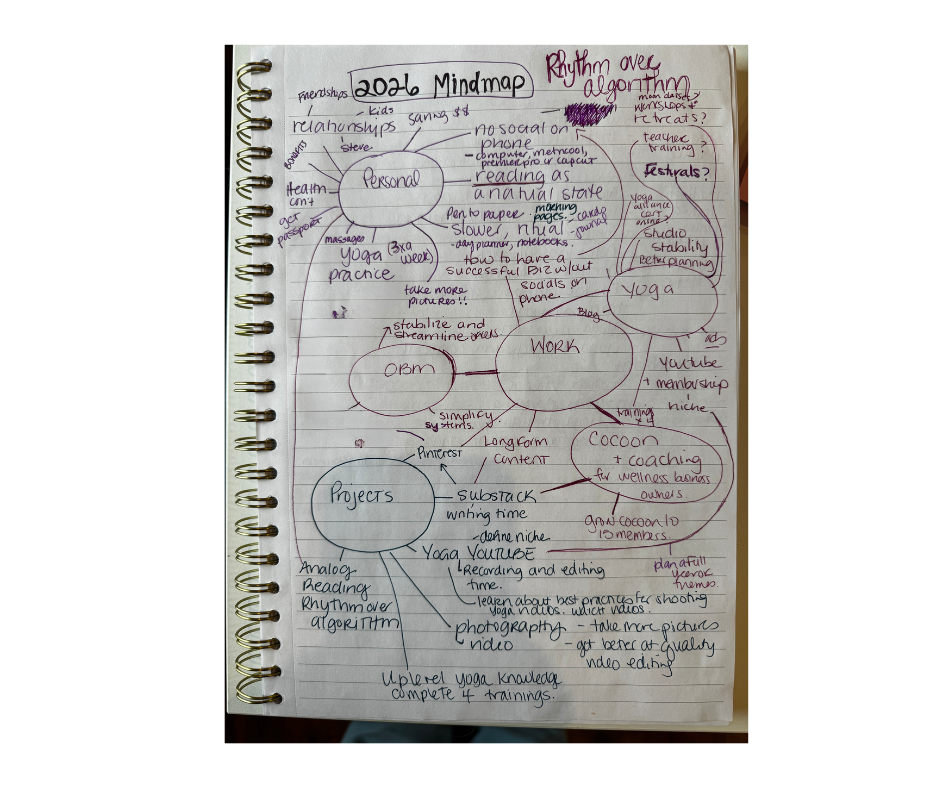 2026 Mindmap
Rhythm over
algorithm
Friendships
kids
saving $$
relationships
Steve
Benefits
Health
con't
get
passport
massages
yoga
practice
3x a
week
Personal
no social on
phone
- computer, metricool,
premiere pro or capcut
reading as
a natural state
Pen to paper
morning
pages.
slower, ritual
- candy
journal
- day planner, notebooks.
take more
pictures!!
how to have a
successful Biz w/out
socials on
phone.
workshops
retreats?
teacher
training?
Festivals?
yoga
alliance
cert
online
studio
stability
Better planning
YOGA
Blog
ads
youtube
+ membership
niche
WORK
stabilize and
streamline offers
OBM
simplify
systems.
training
Cocoon
+ coaching
for wellness business
owners
grow cocoon to
15 members
plan a full
year of
themes.
Pinterest
Longform
content
Projects
substack
writing time
- define niche
Yoga YOUTUBE
Recording and editing
time.
learn about best practices for shooting
yoga videos. which videos.
Analog
Reading
Rhythm over
algorithm
photography
- take more pictures
video
- get better at quality
video editing
Uplevel yoga knowledge
complete 4 trainings.